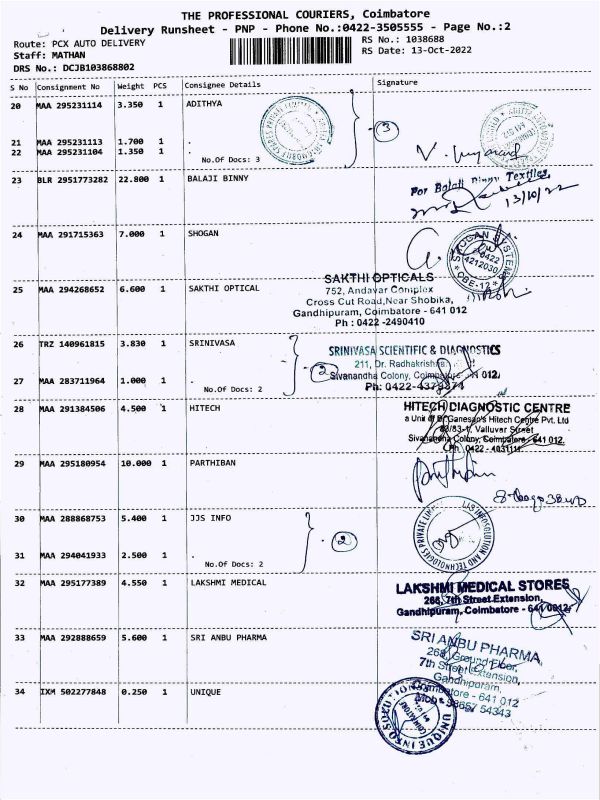 THE PROFESSIONAL COURIERS, Coimbatore
Delivery Runsheet - PNP - Phone No.:0422-3505555 - Page No.:2
Route: PCX AUTO DELIVERY
RS No.: 1038688
Staff: MATHAN
RS Date: 13-Oct-2022
DRS No.: DCJB103868802
S No Consignment No Weight PCS Consignee Details Signature
20 MAA 295231114 3.350 1 ADITHYA
21 MAA 295231113 1.700 1 .
3
22 MAA 295231104 1.350 1 .
No.Of Docs: 3
23 BLR 2951773282 22.800 1 BALAJI BINNY
For Balaji Binny Textiles,
13/10/22
24 MAA 291715363 7.000 1 SHOGAN
SHOGAN SYSTEMS
0422
4212030
CBE-12
25 MAA 294268652 6.600 1 SAKTHI OPTICAL
SAKTHI OPTICALS
752, Andavar Complex
Cross Cut Road,Near Shobika,
Gandhipuram, Coimbatore - 641 012
Ph : 0422 -2490410
26 TRZ 140961815 3.830 1 SRINIVASA
SRINIVASA SCIENTIFIC & DIAGNOSTICS
211, Dr. Radhakrishna
2
Sivanandha Colony, Coimbatore - 641 012.
27 MAA 283711964 1.000 1 .
No.Of Docs: 2
Ph: 0422-4379274
28 MAA 291384506 4.500 1 HITECH
HITECH DIAGNOSTIC CENTRE
a Unit of Dr.Ganesan's Hitech Centre Pvt. Ltd
Valluvar Street
Sivanandha Colony, Coimbatore - 641 012.
Ph : 0422 - 4031111
29 MAA 295180954 10.000 1 PARTHIBAN
30 MAA 288868753 5.400 1 JJS INFO
2
31 MAA 294041933 2.500 1 .
No.Of Docs: 2
32 MAA 295177389 4.550 1 LAKSHMI MEDICAL
LAKSHMI MEDICAL STORES
268, 7th Street Extension,
Gandhipuram, Coimbatore - 641 0012.
33 MAA 292888659 5.600 1 SRI ANBU PHARMA
SRI ANBU PHARMA
268, Ground Floor,
7th Street Extension,
Gandhipuram,
Coimbatore - 641 012
34 IXM 502277848 0.250 1 UNIQUE
UNIQUE INFO SOLUTIONS